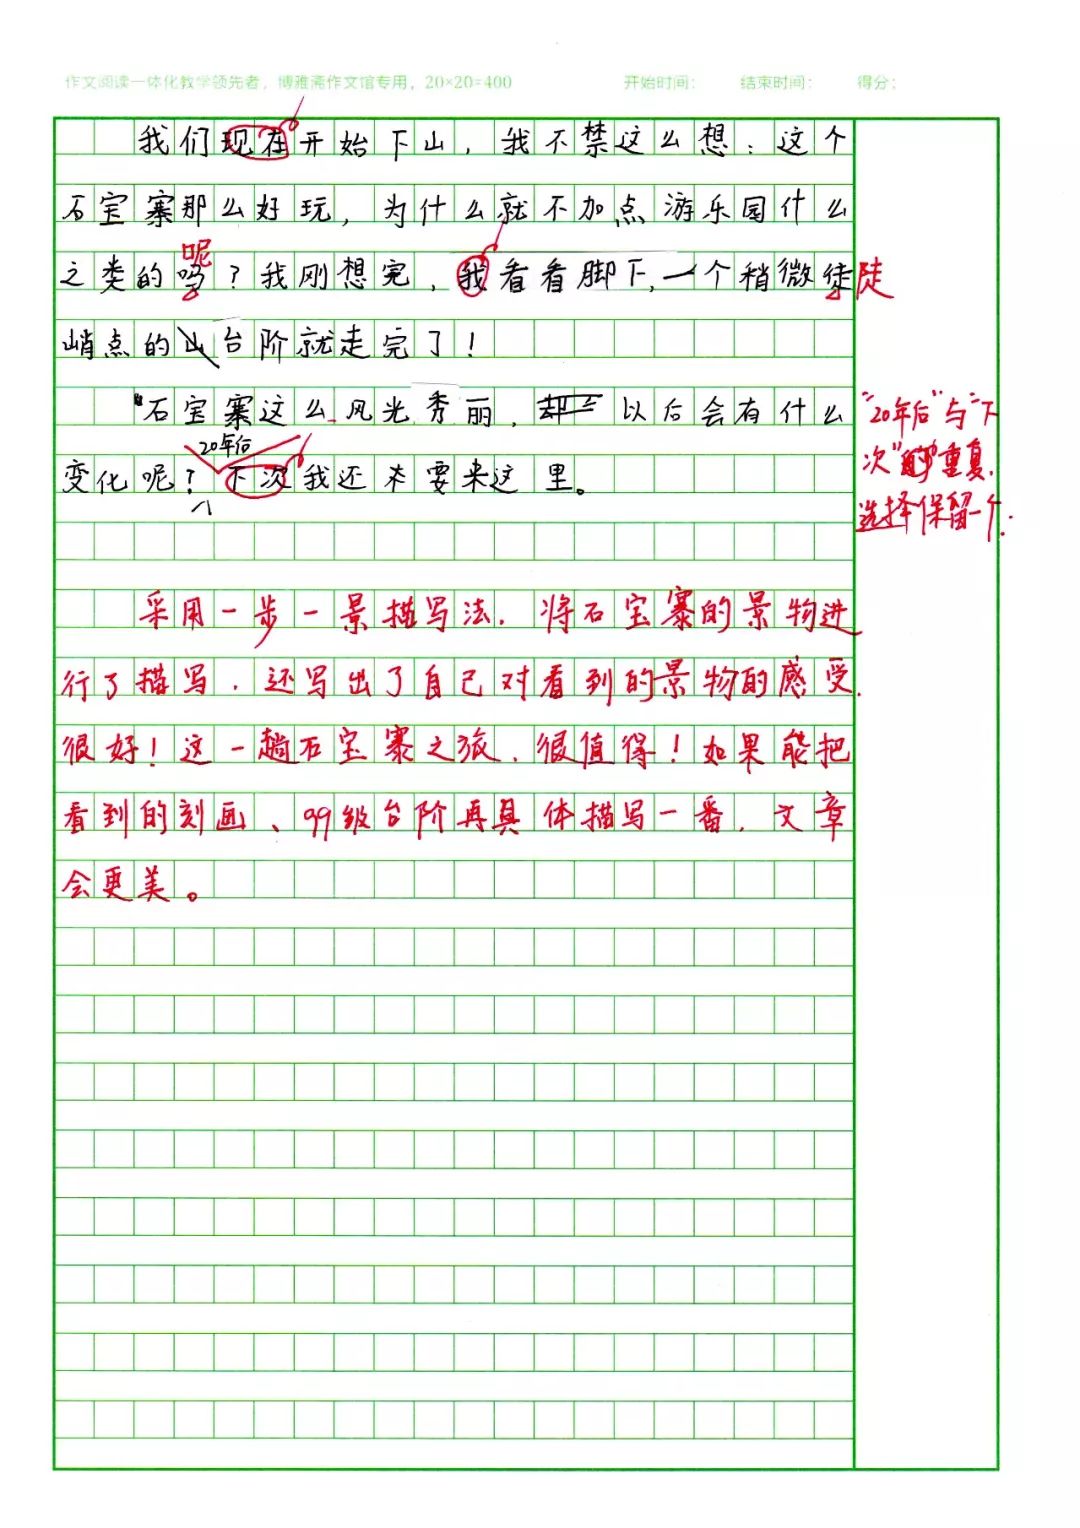 作文阅读一体化教学领先者，博雅斋作文馆专用，20×20=400 开始时间： 结束时间： 得分：
我们现在开始下山，我不禁这么想：这个
石宝寨那么好玩，为什么就不加点游乐园什么
呢
之类的吗？我刚想完，我看看脚下，一个稍微徒 陡
峭点的山台阶就走完了！
石宝寨这么风光秀丽，却 以后会有什么
20年后
变化呢？下次我还要来这里。
"20年后"与"下
次"重复.
选择保留一个.
采用一步一景描写法.将石宝寨的景物进
行了描写.还写出了自己对看到的景物的感受.
很好！这一趟石宝寨之旅.很值得！如果能把
看到的刻画、99级台阶再具体描写一番.文章
会更美。